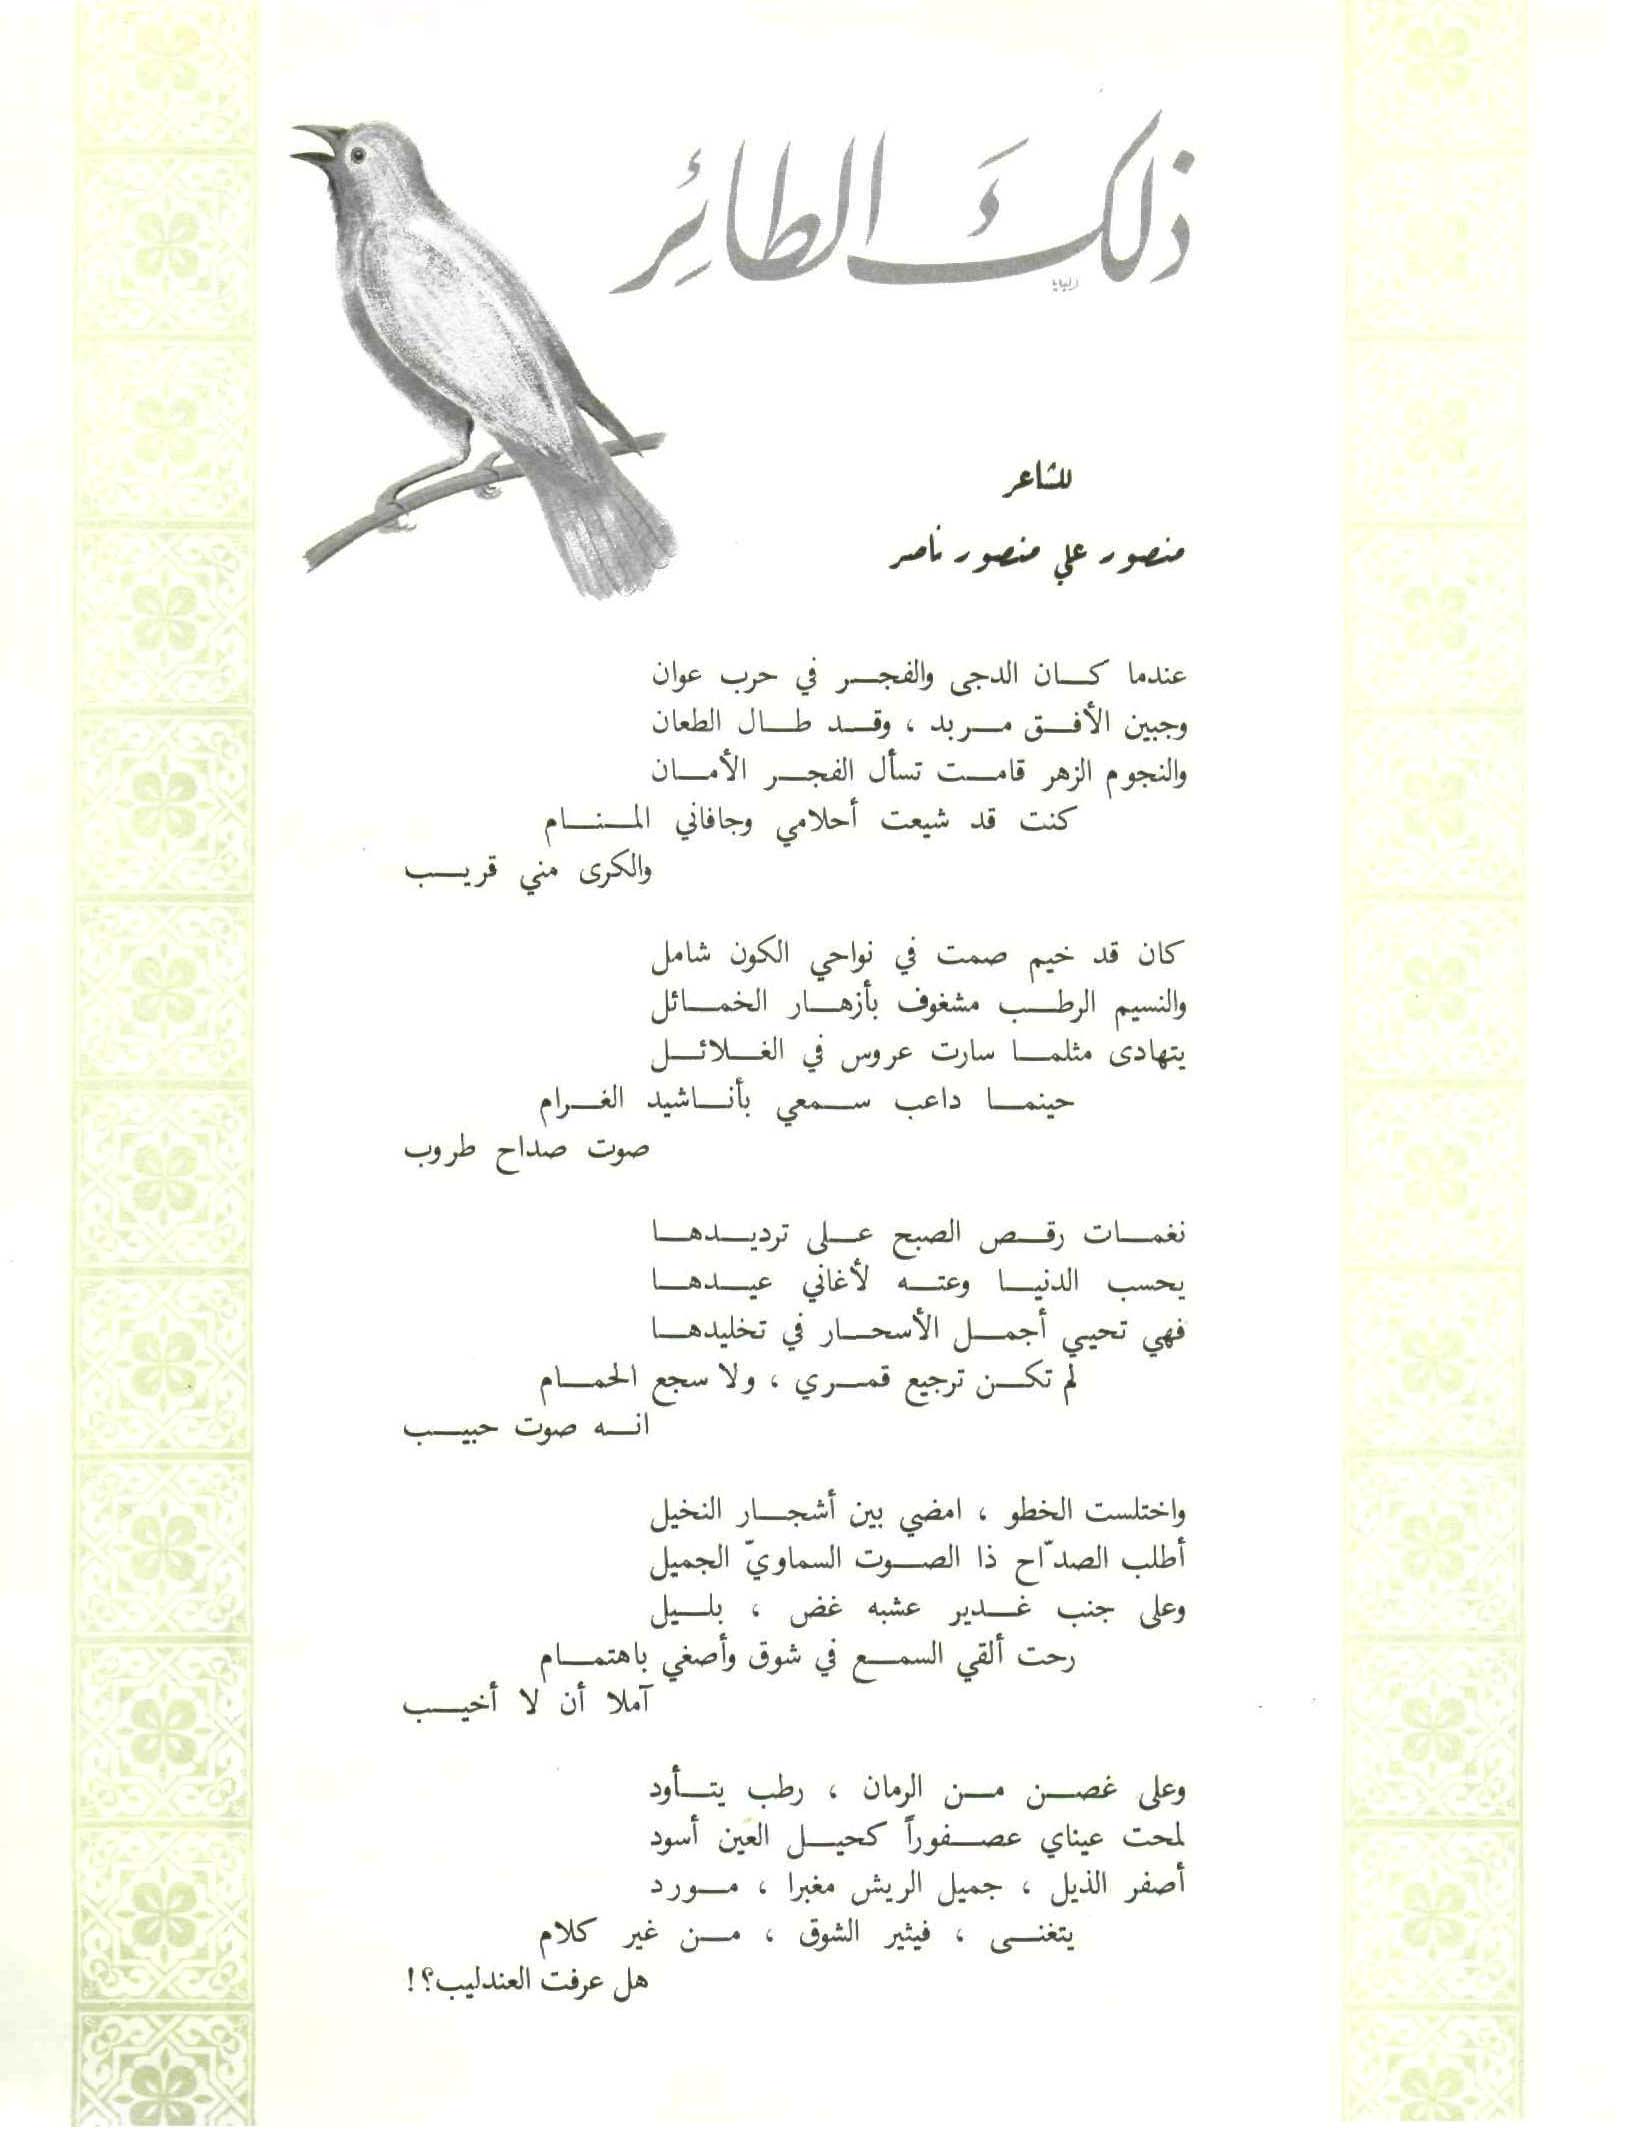 ذلكَ الطائِر
للشاعر
منصور علي منصور ناصر
عندما كان الدجى والفجر في حرب عوان
وجبين الأفق مربد ، وقد طال الطعان
والنجوم الزهر قامت تسأل الفجر الأمان
كنت قد شيعت أحلامي وجافاني المنام
والكرى مني قريب
كان قد خيم صمت في نواحي الكون شامل
والنسيم الرطب مشغوف بأزهار الخمائل
يتهادى مثلما سارت عروس في الغلائل
حينما داعب سمعي بأناشيد الغرام
صوت صداح طروب
نغمات رقص الصبح على ترديدها
يحسب الدنيا وعته لأغاني عيدها
فهي تحيي أجمل الأسحار في تخليدها
لم تكن ترجيع قمري ، ولا سجع الحمام
انه صوت حبيب
واختلست الخطو ، امضي بين أشجار النخيل
أطلب الصدّاح ذا الصوت السماويّ الجميل
وعلى جنب غدير عشبه غض ، بليل
رحت ألقي السمع في شوق وأصغي باهتمام
آملا أن لا أخيب
وعلى غصن من الرمان ، رطب يتأود
لمحت عيناي عصفوراً كحيل العين أسود
أصفر الذيل ، جميل الريش مغبرا ، مورد
يتغنى ، فيثير الشوق ، من غير كلام
هل عرفت العندليب؟!